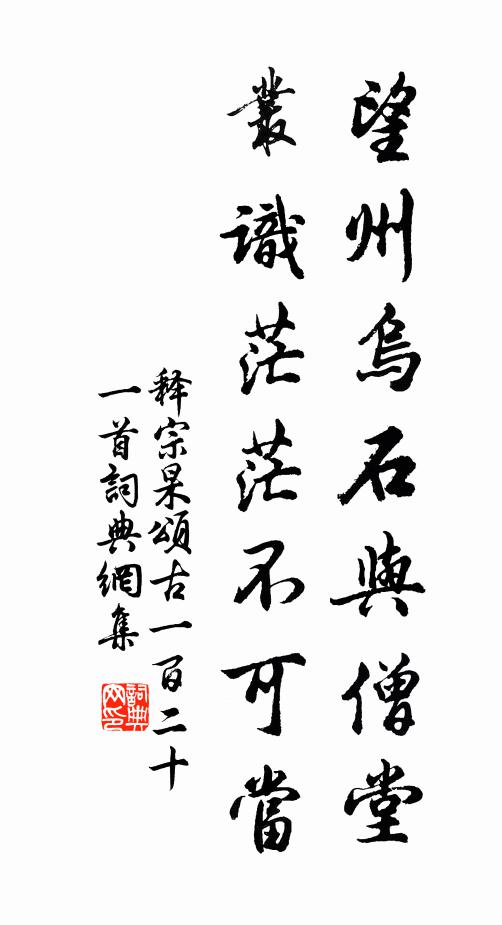 望州烏石與僧堂
叢識茫茫不可當
释宗杲頌古一百二十
一首詞典網集
詞典网印